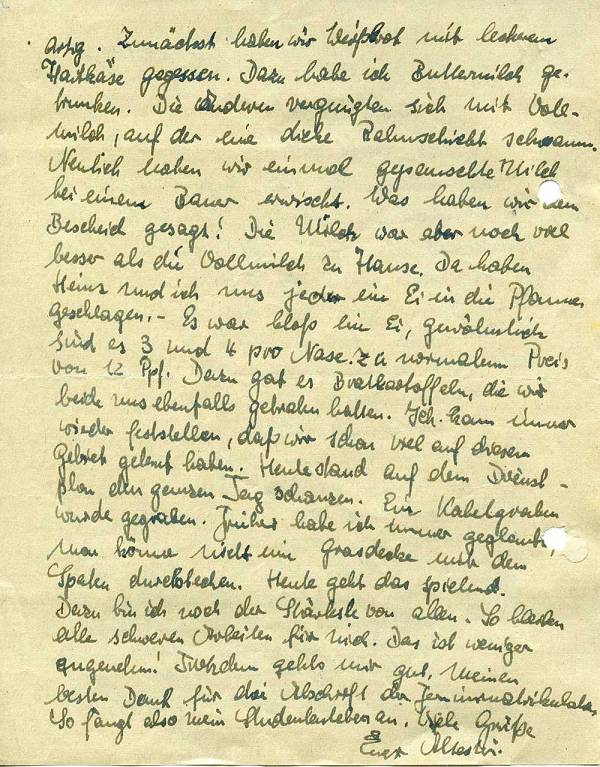 artig. Zunächst haben wir Weißbrot mit leckerem
Hartkäse gegessen. Dazu habe ich Buttermilch ge-
trunken. Die anderen vergnügten sich mit Voll-
milch, auf der eine dicke Rahmschicht schwamm.
Neulich haben wir einmal gepanschte Milch
bei einem Bauer erwischt. Was haben wir dem
Bescheid gesagt! Die Milch war aber noch viel
besser als die Vollmilch zu Hause. Da haben
Heinz und ich uns jeder ein Ei in die Pfanne
geschlagen. - Es war bloß ein Ei, gewöhnlich
sind es 3 und 4 pro Nase. Zu normalem Preis
von 12 Rpf. Dazu gab es Bratkartoffeln, die wir
beide uns ebenfalls gebraten hatten. Ich kann immer
wieder feststellen, daß wir schon viel auf diesem
Gebiet gelernt haben. Heute stand auf dem Dienst-
plan, den ganzen Tag schanzen. Ein Kabelgraben
wurde gegraben. Früher habe ich immer geglaubt,
man könne nicht eine Grasdecke mit dem
Spaten durchstechen. Heute geht das spielend.
Dazu bin ich noch der Stärkste von allen. So bleiben
alle schweren Arbeiten für mich. Das ist weniger
angenehm! Trotzdem gehts mir gut. Meinen
besten Dank für die Abschrift der
So fängt also mein Studentenleben an. Viele Grüße
Euer